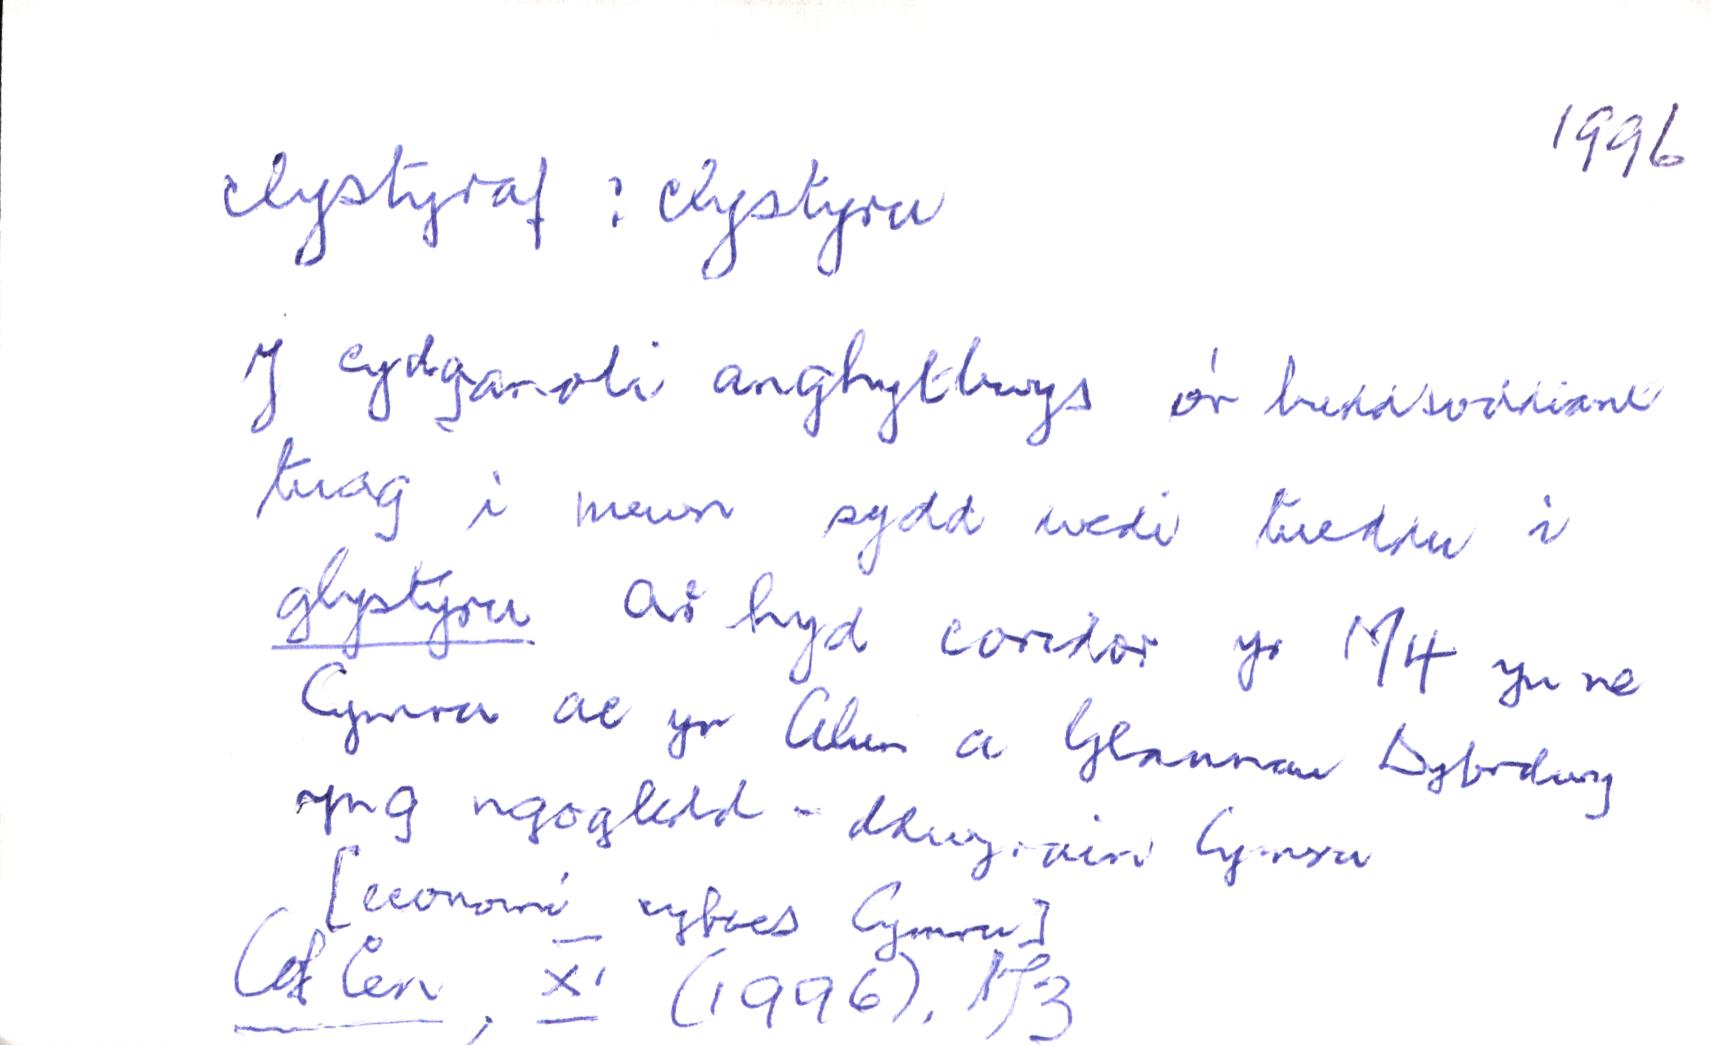 1996
clystyraf : clystyru
Y cydganoli anghytbwys o'r buddsoddiant
tuag i mewn sydd wedi tueddu i
glystyru ar hyd coridor yr M4 yn ne
Cymru ac yn Alun a Glannau Dyfrdwy
yng ngogledd-ddwyrain Cymru
[economi cyfoes Cymru]
Cof Cen, XI (1996), 173